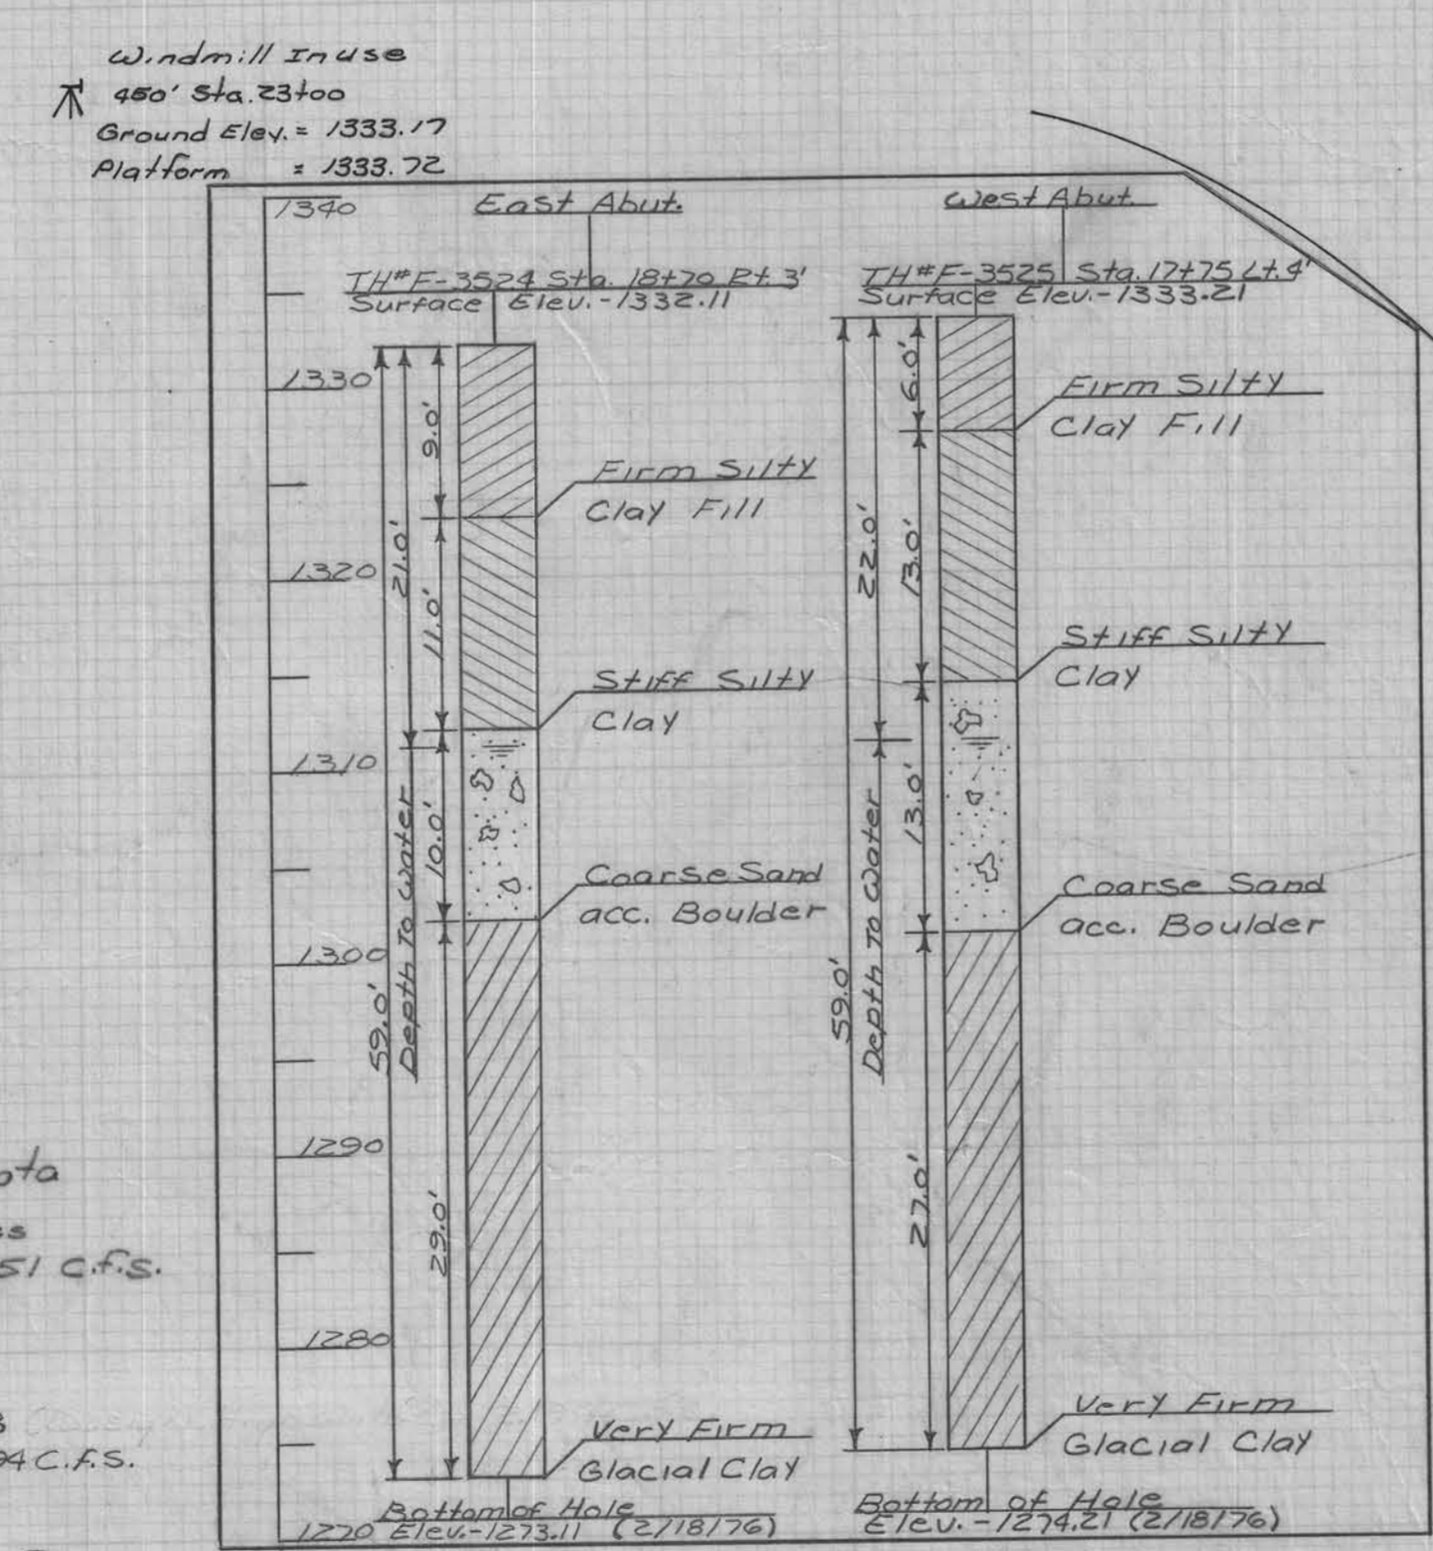 Windmill In use
450' Sta. 23+00
Ground Elev. = 1333.17
Platform = 1333.72
1340
1330
1320
1310
1300
1290
1280
1270
East Abut.
TH#F-3524 Sta. 18+70 Rt. 3'
Surface Elev.-1332.11
9.0'
21.0'
11.0'
10.0'
59.0'
Depth To Water
29.0'
Firm Silty
Clay Fill
Stiff Silty
Clay
Coarse Sand
acc. Boulder
Very Firm
Glacial Clay
Bottom of Hole
Elev.-1273.11 (2/18/76)
West Abut.
TH#F-3525 Sta. 17+75 Lt. 4'
Surface Elev.-1333.21
6.0'
22.0'
13.0'
13.0'
59.0'
Depth To Water
27.0'
Firm Silty
Clay Fill
Stiff Silty
Clay
Coarse Sand
acc. Boulder
Very Firm
Glacial Clay
Bottom of Hole
Elev.-1274.21 (2/18/76)
51 c.f.s.
94 C.f.S.